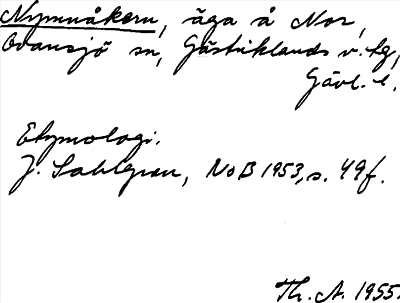 Nymnåkern, äga å Nor,
Ovansjö sn, Gästriklands v. tg,
Gävl. l.
Etymologi.
J. Sahlgren, NoB 1953, s. 49f.
Th. A. 1955.